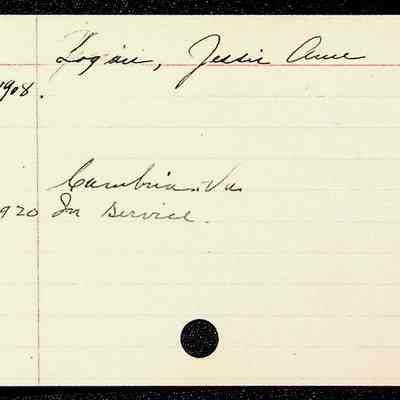 Logan, Jessie Anne
1908.
Cambria, Va.
1920 In Service.